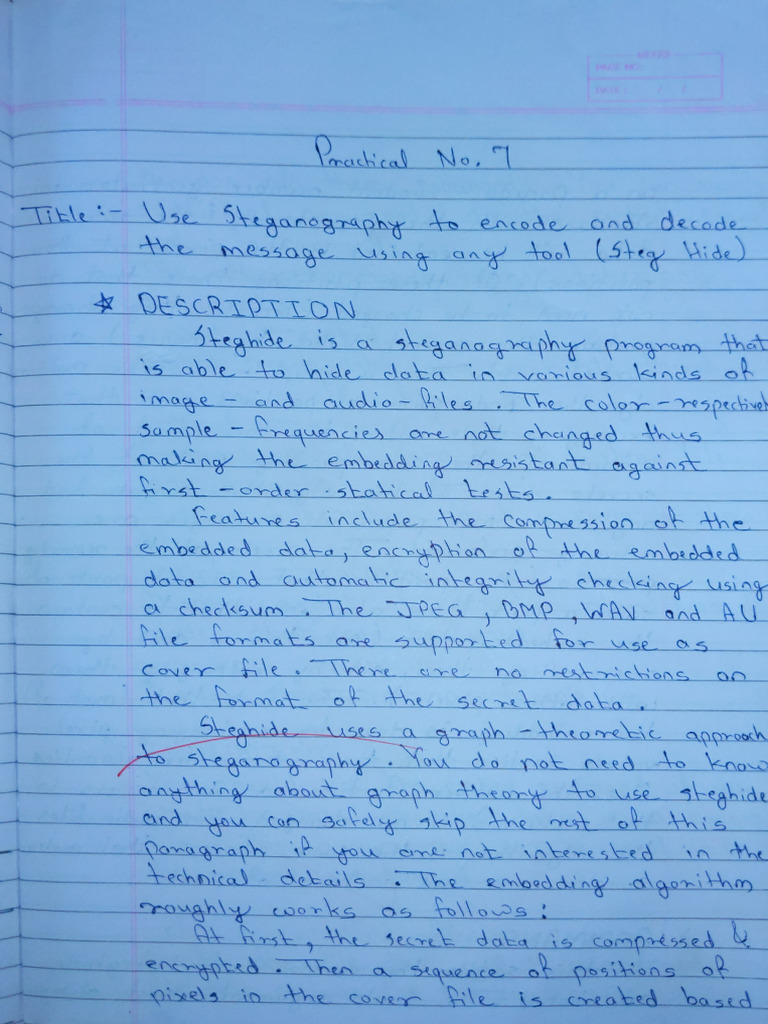 PAGE NO.
DATE: / /
Practical No. 7
Title :- Use Steganography to encode and decode
the message using any tool (Steg Hide)
☆ DESCRIPTION
Steghide is a steganography program that
is able to hide data in various kinds of
image - and audio - files. The color - respectively
sample - frequencies are not changed thus
making the embedding resistant against
first - order statical tests.
Features include the compression of the
embedded data, encryption of the embedded
data and automatic integrity checking using
a checksum. The JPEG, BMP, WAV and AU
file formats are supported for use as
cover file. There are no restrictions on
the format of the secret data.
Steghide uses a graph - theoretic approach
to steganography. You do not need to know
anything about graph theory to use steghide
and you can safely skip the rest of this
paragraph if you are not interested in the
technical details. The embedding algorithm
roughly works as follows:
At first, the secret data is compressed &
encrypted. Then a sequence of positions of
pixels in the cover file is created based